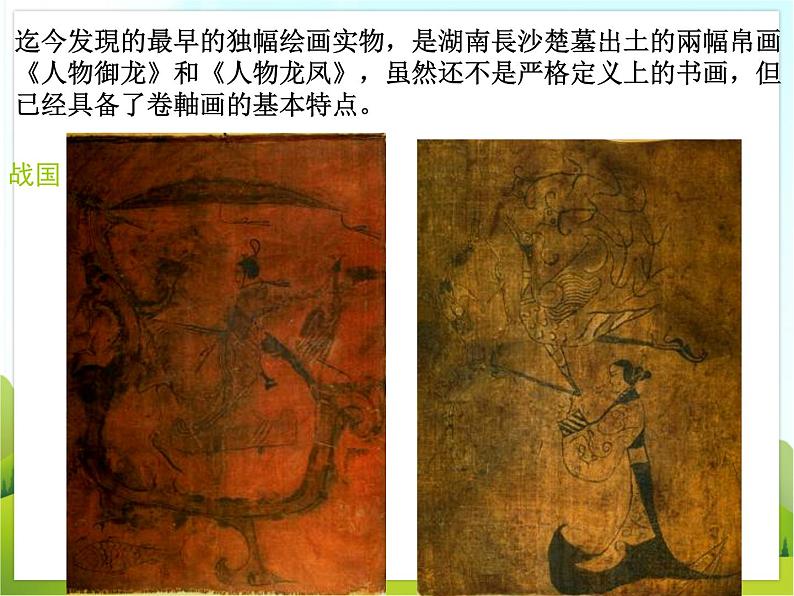 迄今发現的最早的独幅绘画实物，是湖南長沙楚墓出土的兩幅帛画
《人物御龙》和《人物龙凤》，虽然还不是严格定义上的书画，但
已经具备了卷軸画的基本特点。
战国